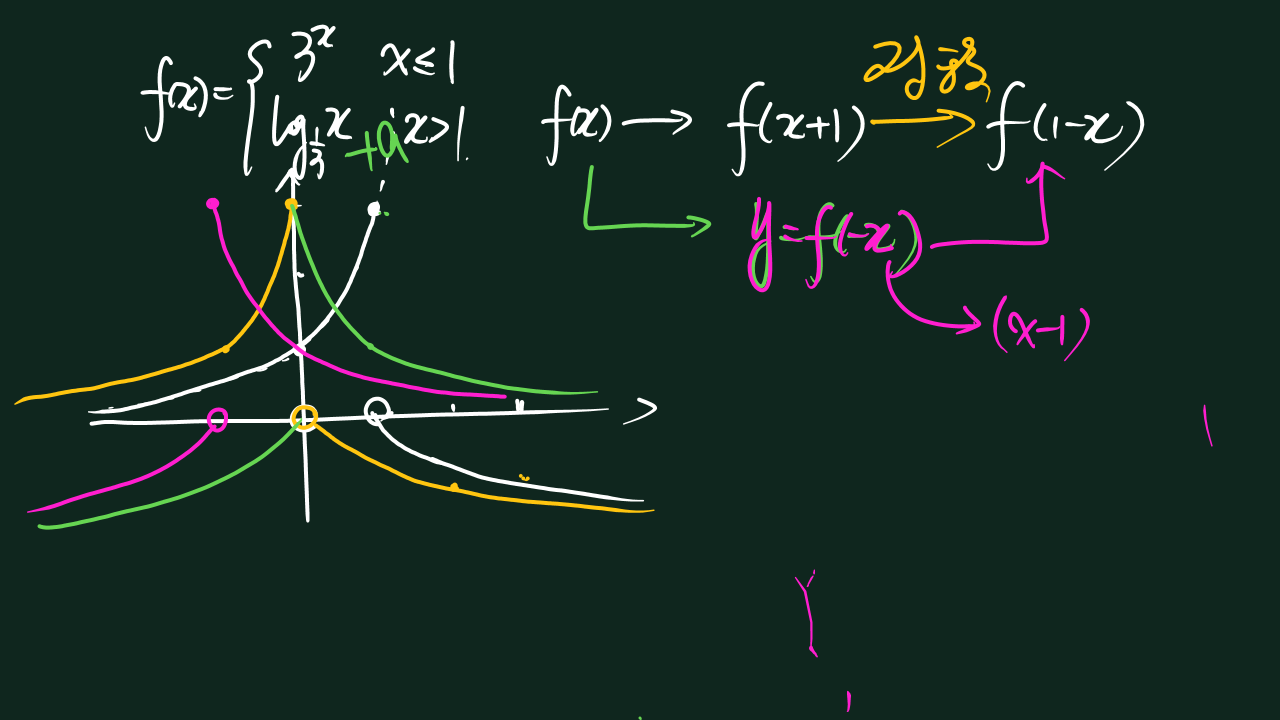 f(x)={ 3^x x≤1
log_{1/3} x +a, x>1.
f(x) → f(x+1) → f(1-x)
y=f(-x)
(x-1)